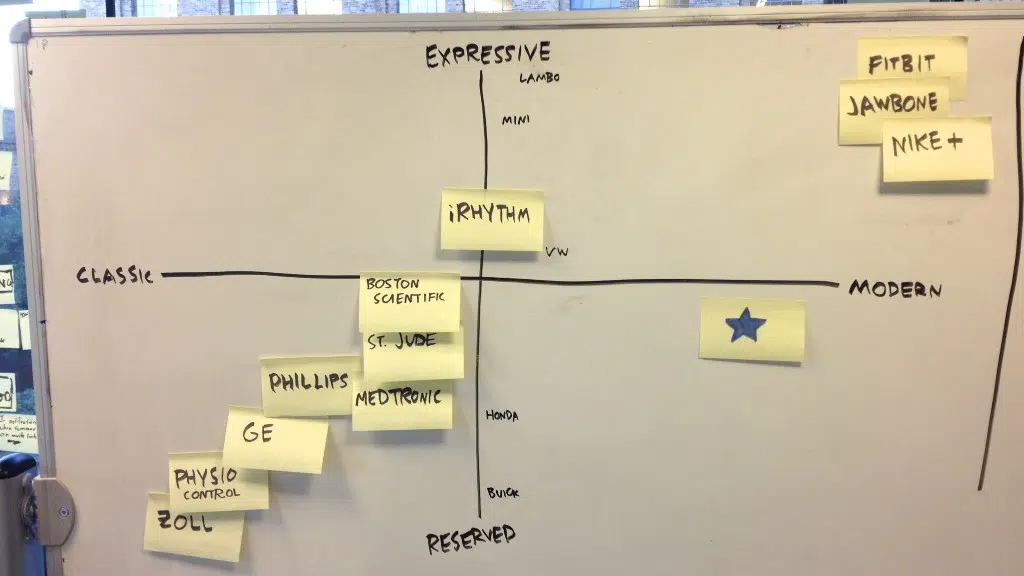 EXPRESSIVE
LAMBO
MINI
FITBIT
JAWBONE
NIKE+
iRHYTHM
VW
CLASSIC
MODERN
BOSTON
SCIENTIFIC
ST. JUDE
PHILLIPS
MEDTRONIC
HONDA
GE
PHYSIO
CONTROL
ZOLL
BUICK
RESERVED